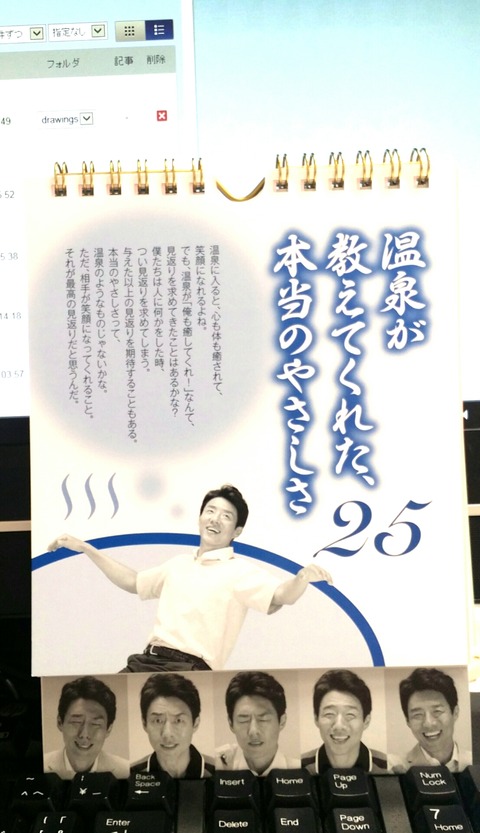 件ずつ
指定なし
フォルダ
記事
削除
49
drawings
-
5:52
5.38
14.18
03:57
温泉が
教えてくれた、
本当のやさしさ
温泉に入ると、心も体も癒されて、
笑顔になれるよね。
でも、温泉が「俺も癒してくれ!」なんて、
見返りを求めてきたことはあるかな?
僕たちは人に何かをした時、
つい見返りを求めてしまう。
与えた以上の見返りを期待することもある。
本当のやさしさって、
温泉のようなものじゃないかな。
ただ、相手が笑顔になってくれること。
それが最高の見返りだと思うんだ。
25
~
へ
¥
ー
Back
Space
←
Insert
Home
Page
Up
Num
Lock
{
「
Enter
Delete
End
Page
Down
7
Home